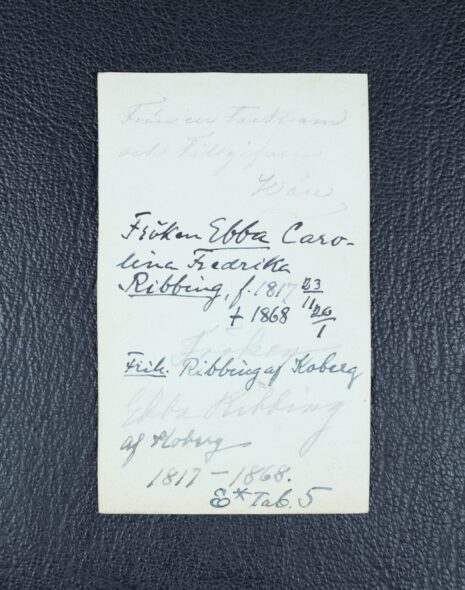 Från en Tacksam
och Tillgifven
Wän
Fröken Ebba Caro-
lina Fredrika
Ribbing, f. 1817 23/11
† 1868 20/1
Fröken
Frih. Ribbing af Koberg
Ebba Ribbing
af Koberg
1817-1868.
Tab. 5